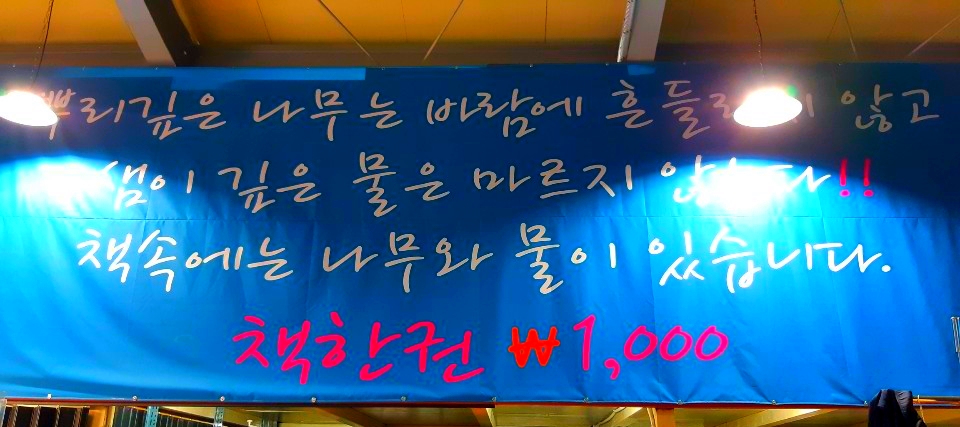 뿌리깊은 나무는 바람에 않고
샘이 깊은 물은 마르지 !!
책속에는 나무와 물이 있습니다.
책한권 ₩1,000